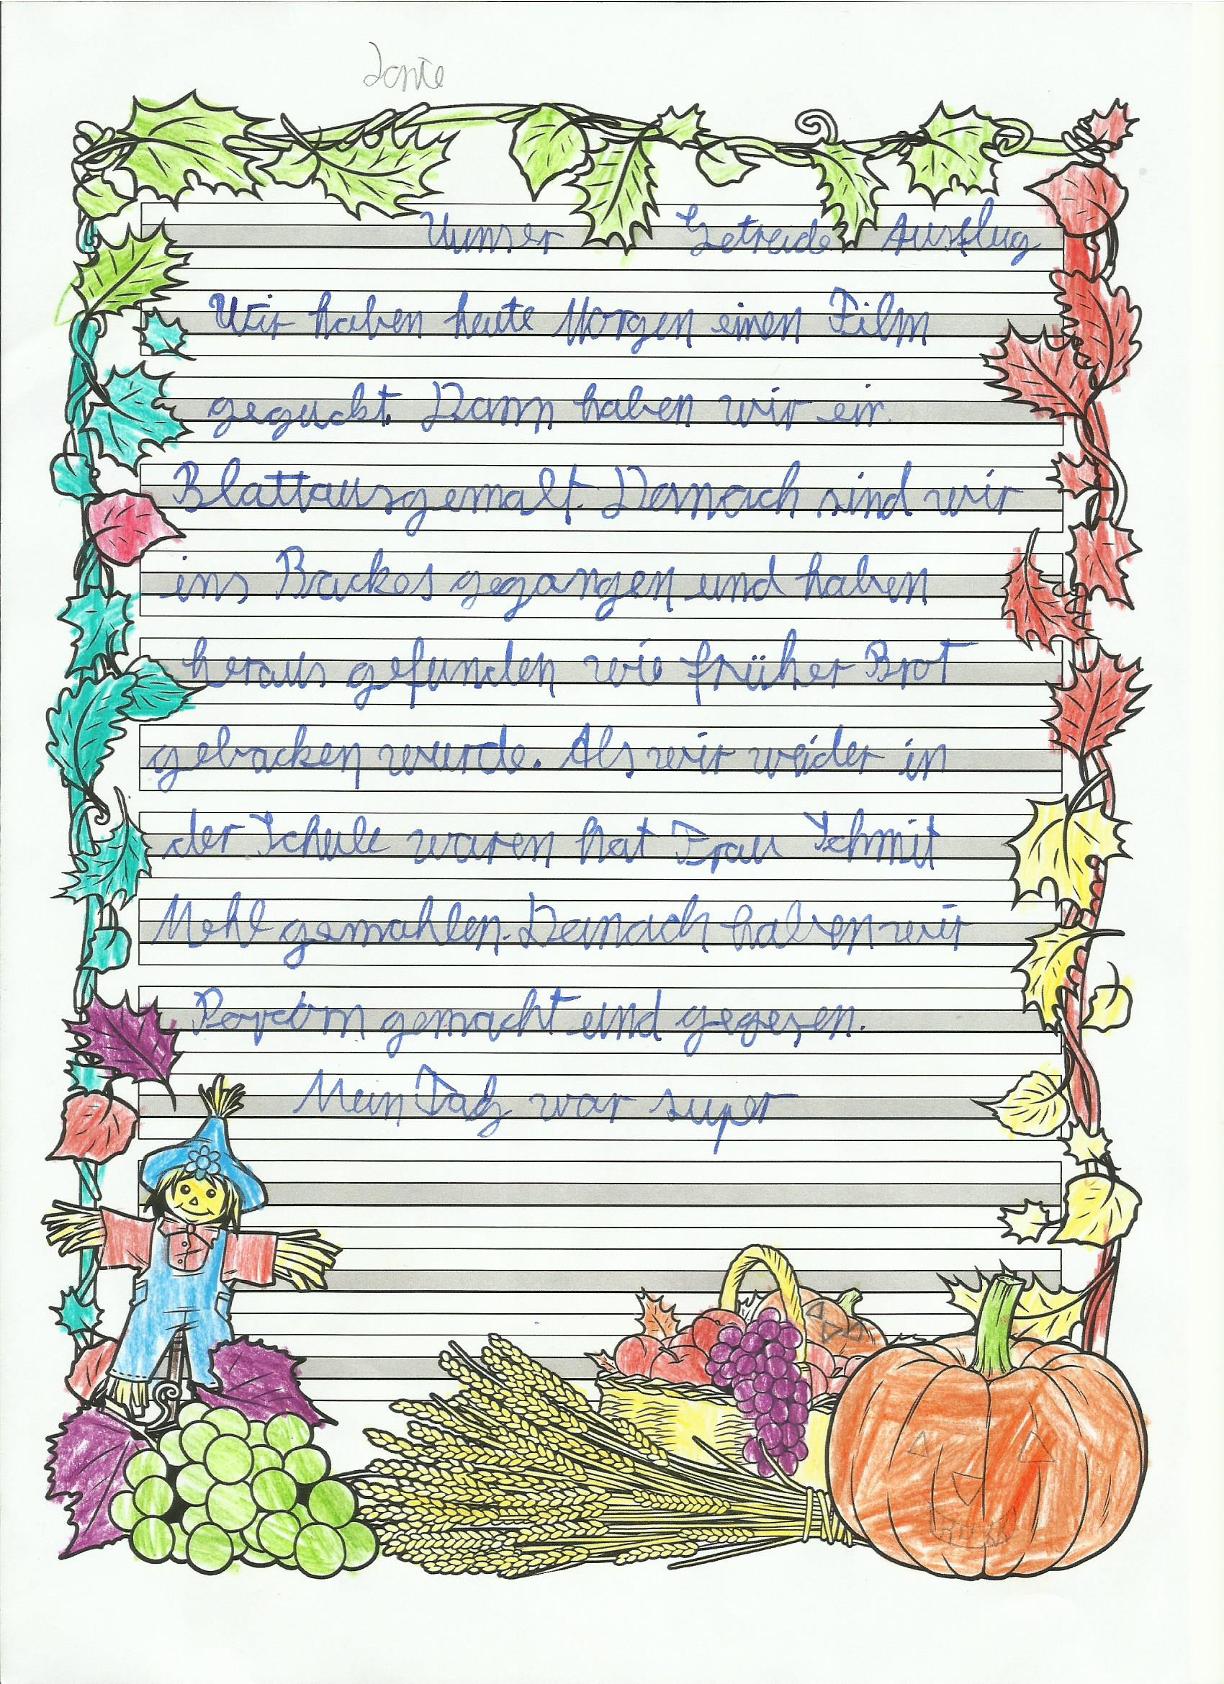 Uunser Getreide Ausflug
Wir haben heute Morgen einen Film
geguckt. Dann haben wir ein
Blattausgemalt. Danach sind wir
ins Backes gegangen und haben
heraus gefunden wie früher Brot
gebacken wurde. Als wir weider in
der Schule waren hat Frau Schmit
Mehl gemahlen. Danach haben wir
gemacht und gegesen.
Mein Tag war super